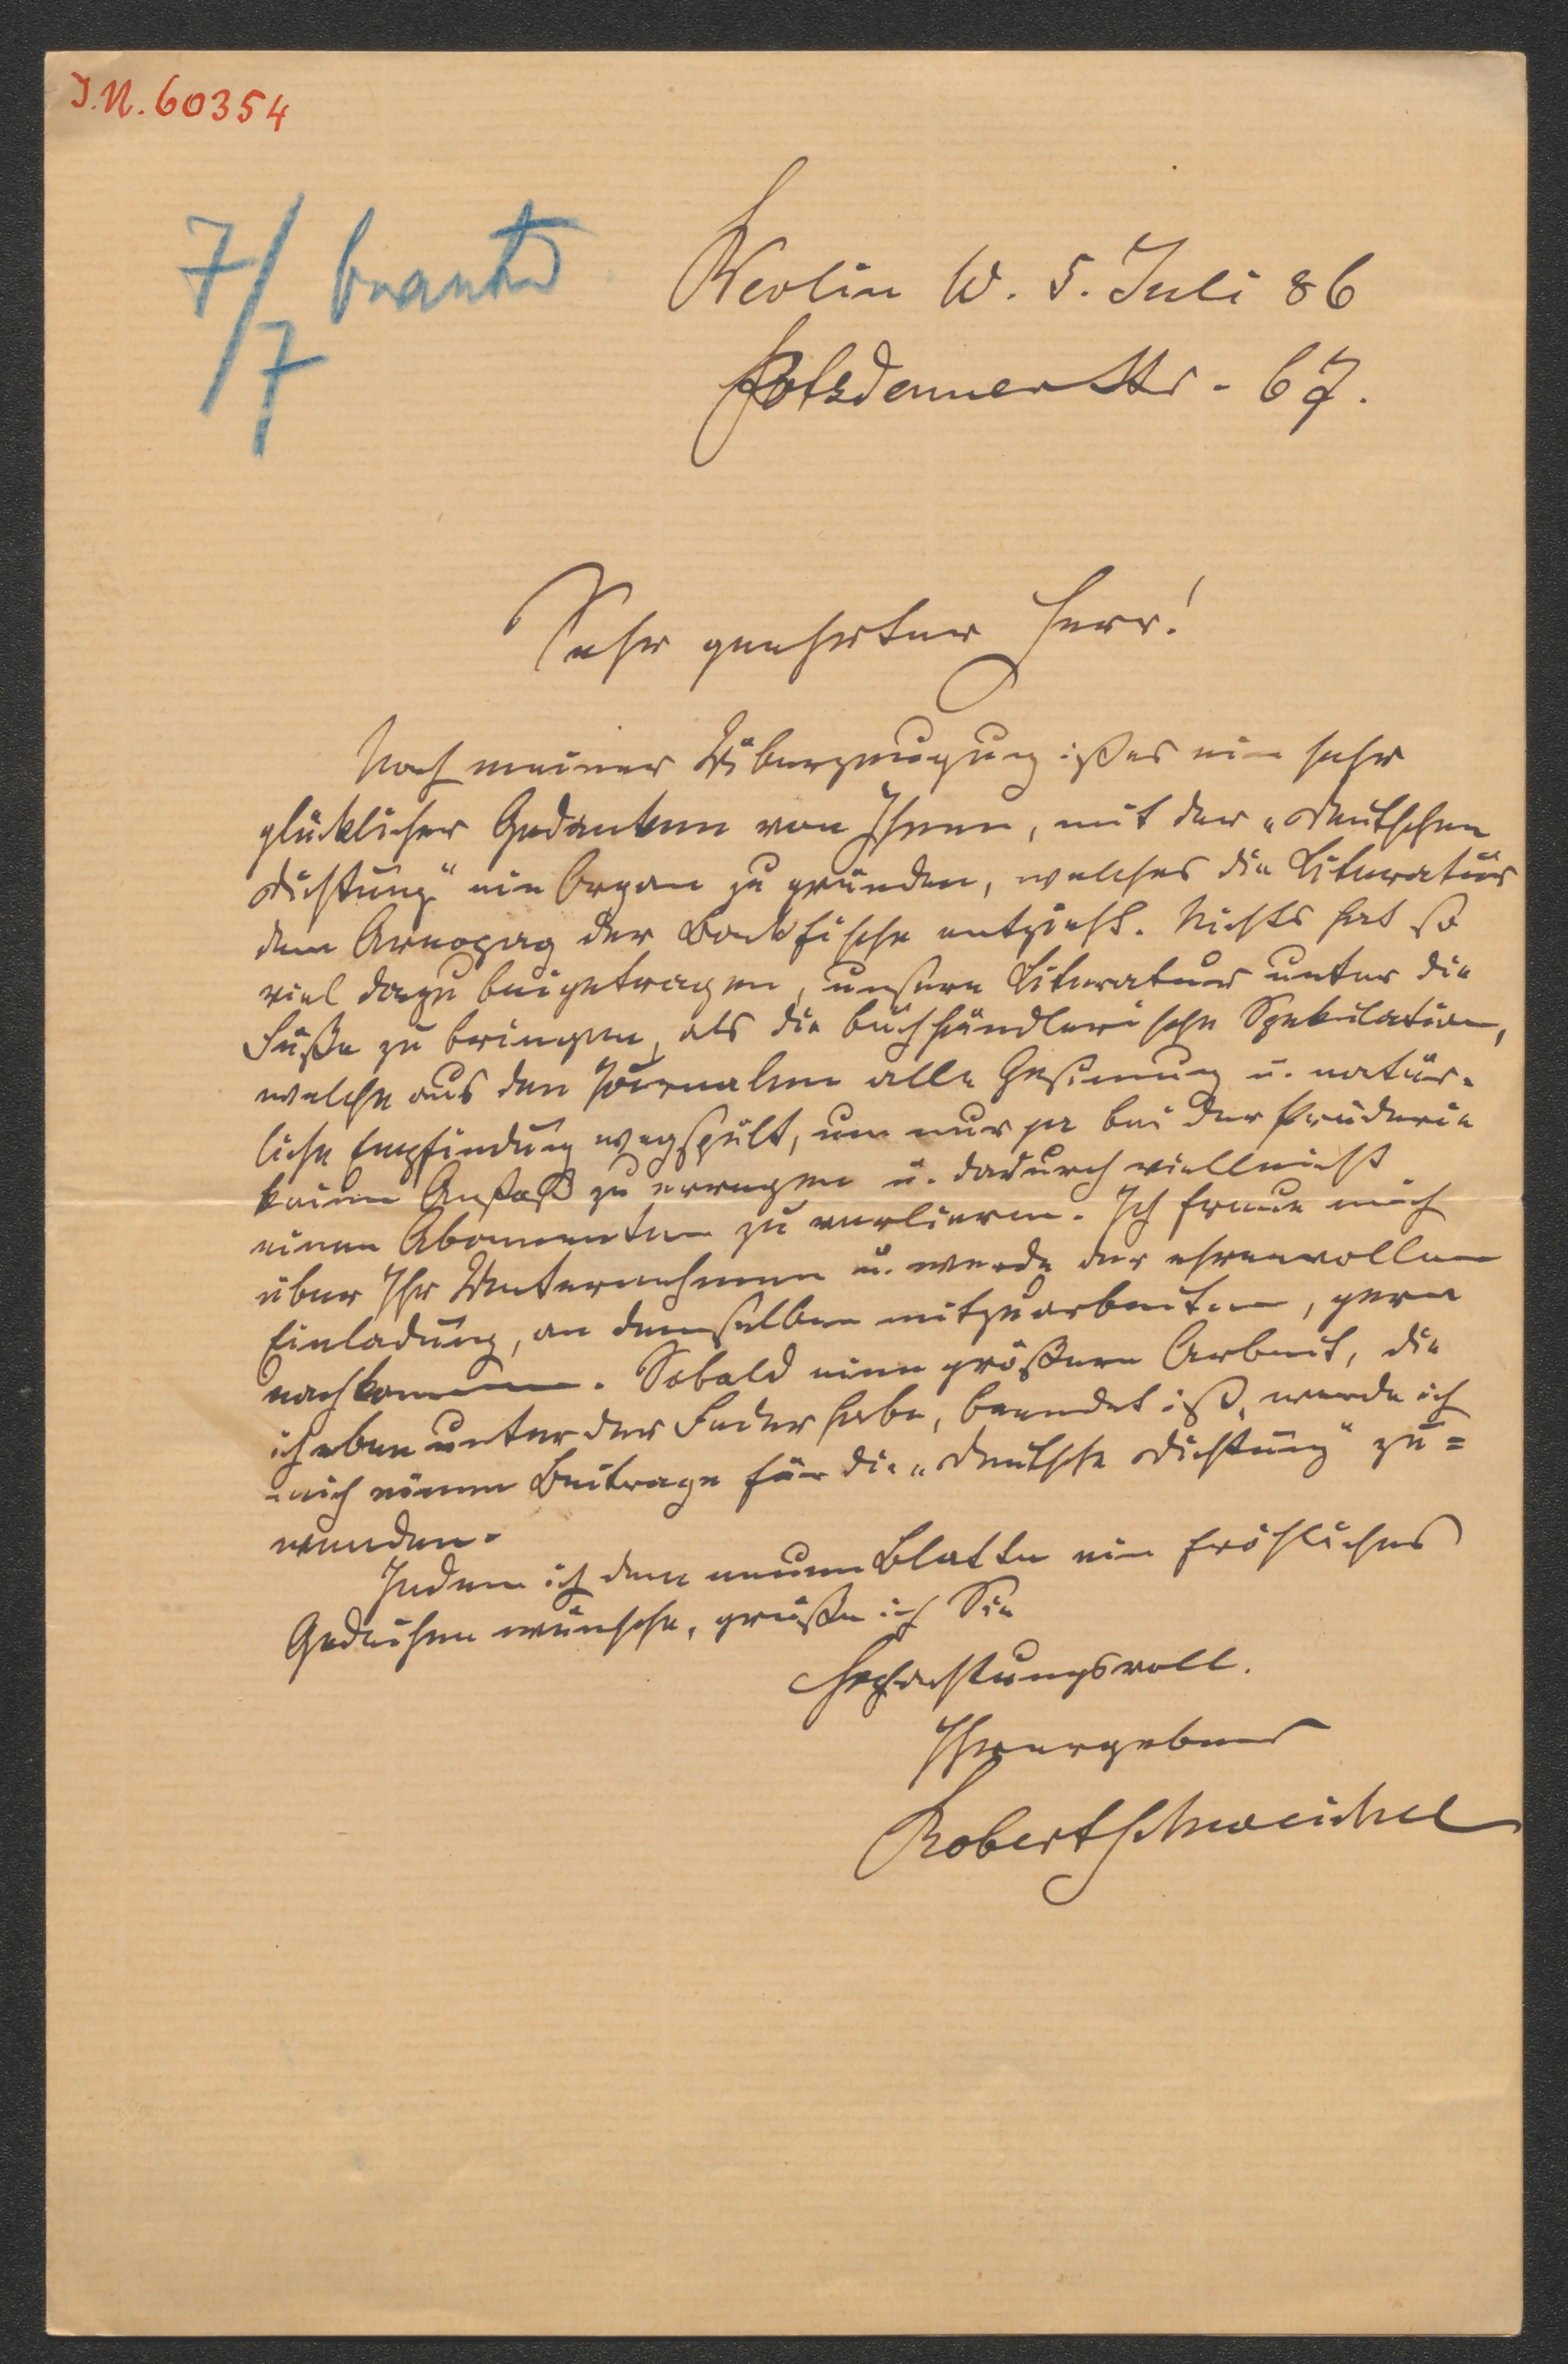 I.N. 60354
7/7 beantw
Berlin W. 5. Juli 86
Potsdamer Str. 67.
Sehr geehrter Herr!
Nach meiner Überzeugung ist es ein sehr
glücklicher Gedanken von Ihnen, mit der „Deutschen
Dichtung“ ein Organ zu gründen, welches die Literatur
dem Areopag der Backfische entzieht. Nichts hat so
viel dazu beigetragen, unsere Literatur unter die
Füße zu bringen, als die buchhändlerische Spekulation,
welche aus den Journalen alle Gesinnung u. natür-
liche Empfindung wegspült, um nur ja bei der Prüderie
keinen Anstoß zu erregen u. dadurch vielleicht
einen Abonnenten zu verlieren. Ich freue mich
über Ihr Unternehmen u. werde der ehrenvollen
Einladung, an demselben mitzuarbeiten, gern
nachkommen. Sobald eine größere Arbeit, die
ich eben unter der Feder habe, beendet ist, werde ich
mich einem Beitrage für die „Deutsche Dichtung“ zu=
wenden.
Indem ich dem neuen Blatte ein fröhliches
Gedeihen wünsche, grüße ich Sie
Hochachtungsvoll.
Ihr ergebener
Robert Schweichel